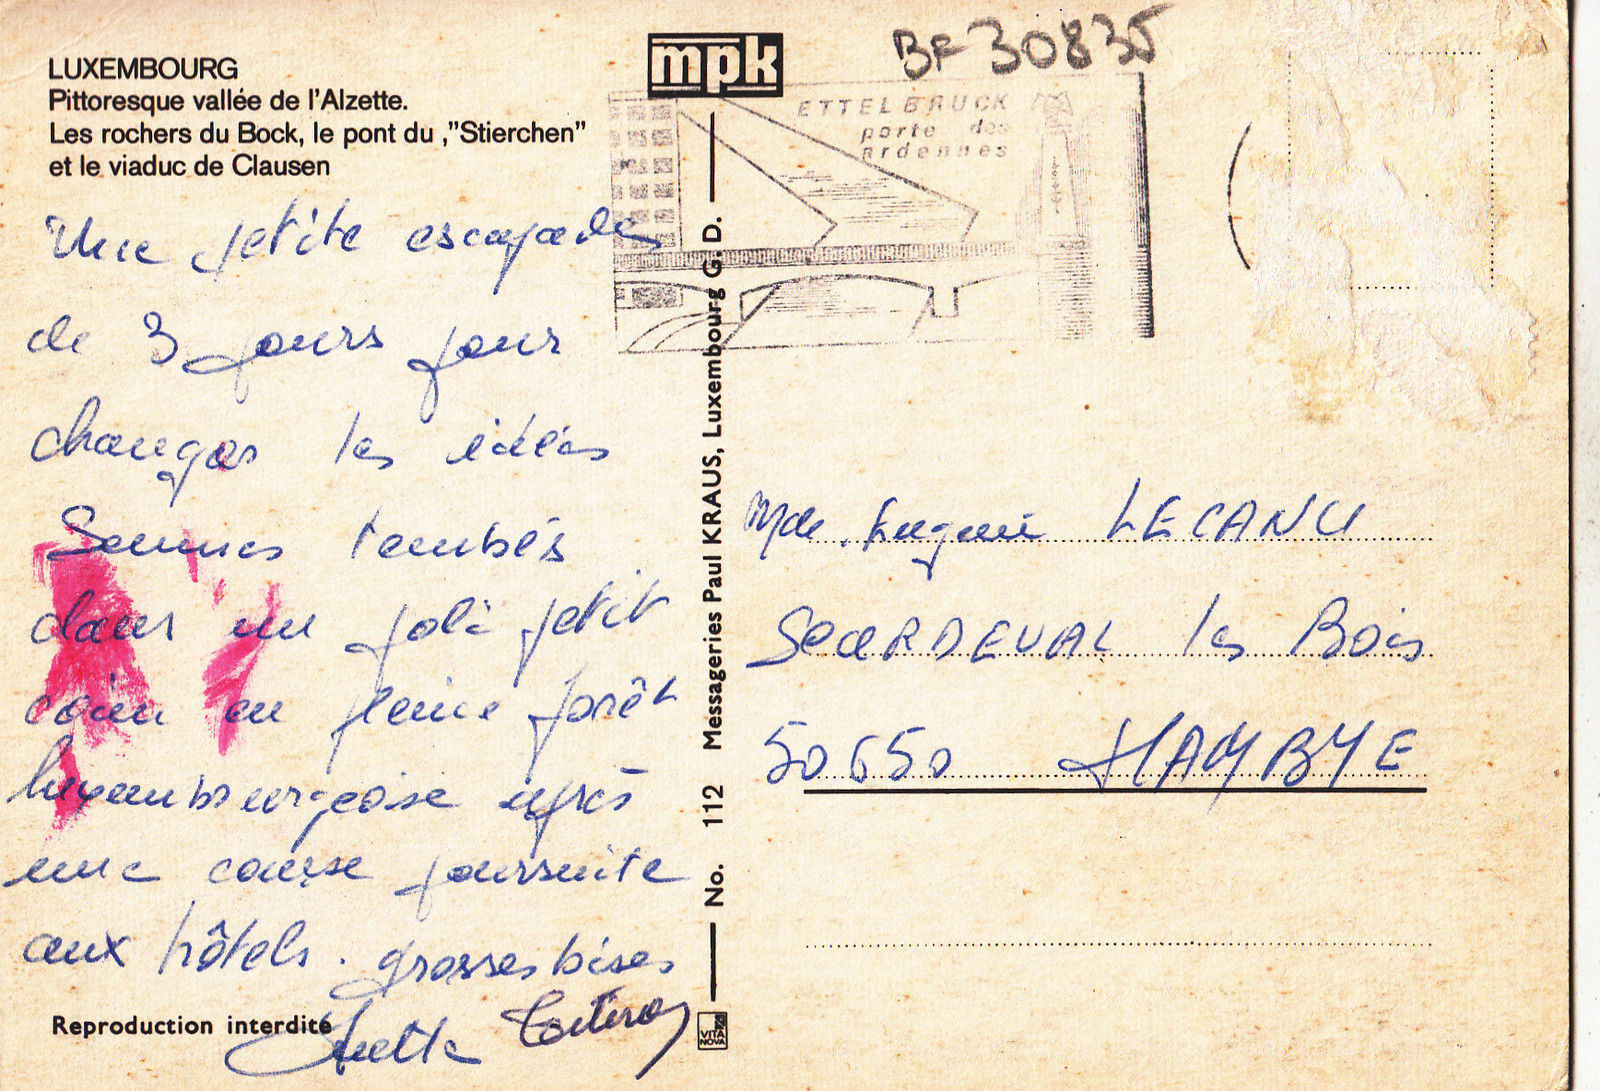 LUXEMBOURG
Pittoresque vallée de l'Alzette.
Les rochers du Bock, le pont du ,"Stierchen"
et le viaduc de Clausen
Une petite escapade
de 3 jours pour
changer les idées
Sommes tombés
dans un joli petit
coin en pleine forêt
luxembourgeoise après
une course poursuite
aux hôtels. grosses bises
Reproduction interdite
mpk
BF 30835
ETTELBRUCK
porte des
ardennes
No. 112 Messageries Paul KRAUS, Luxembourg G. D.
VITA
NOVA
Mde. Eugénie LECANU
ScaRDEVAL les Bois
50650 HAMBYE